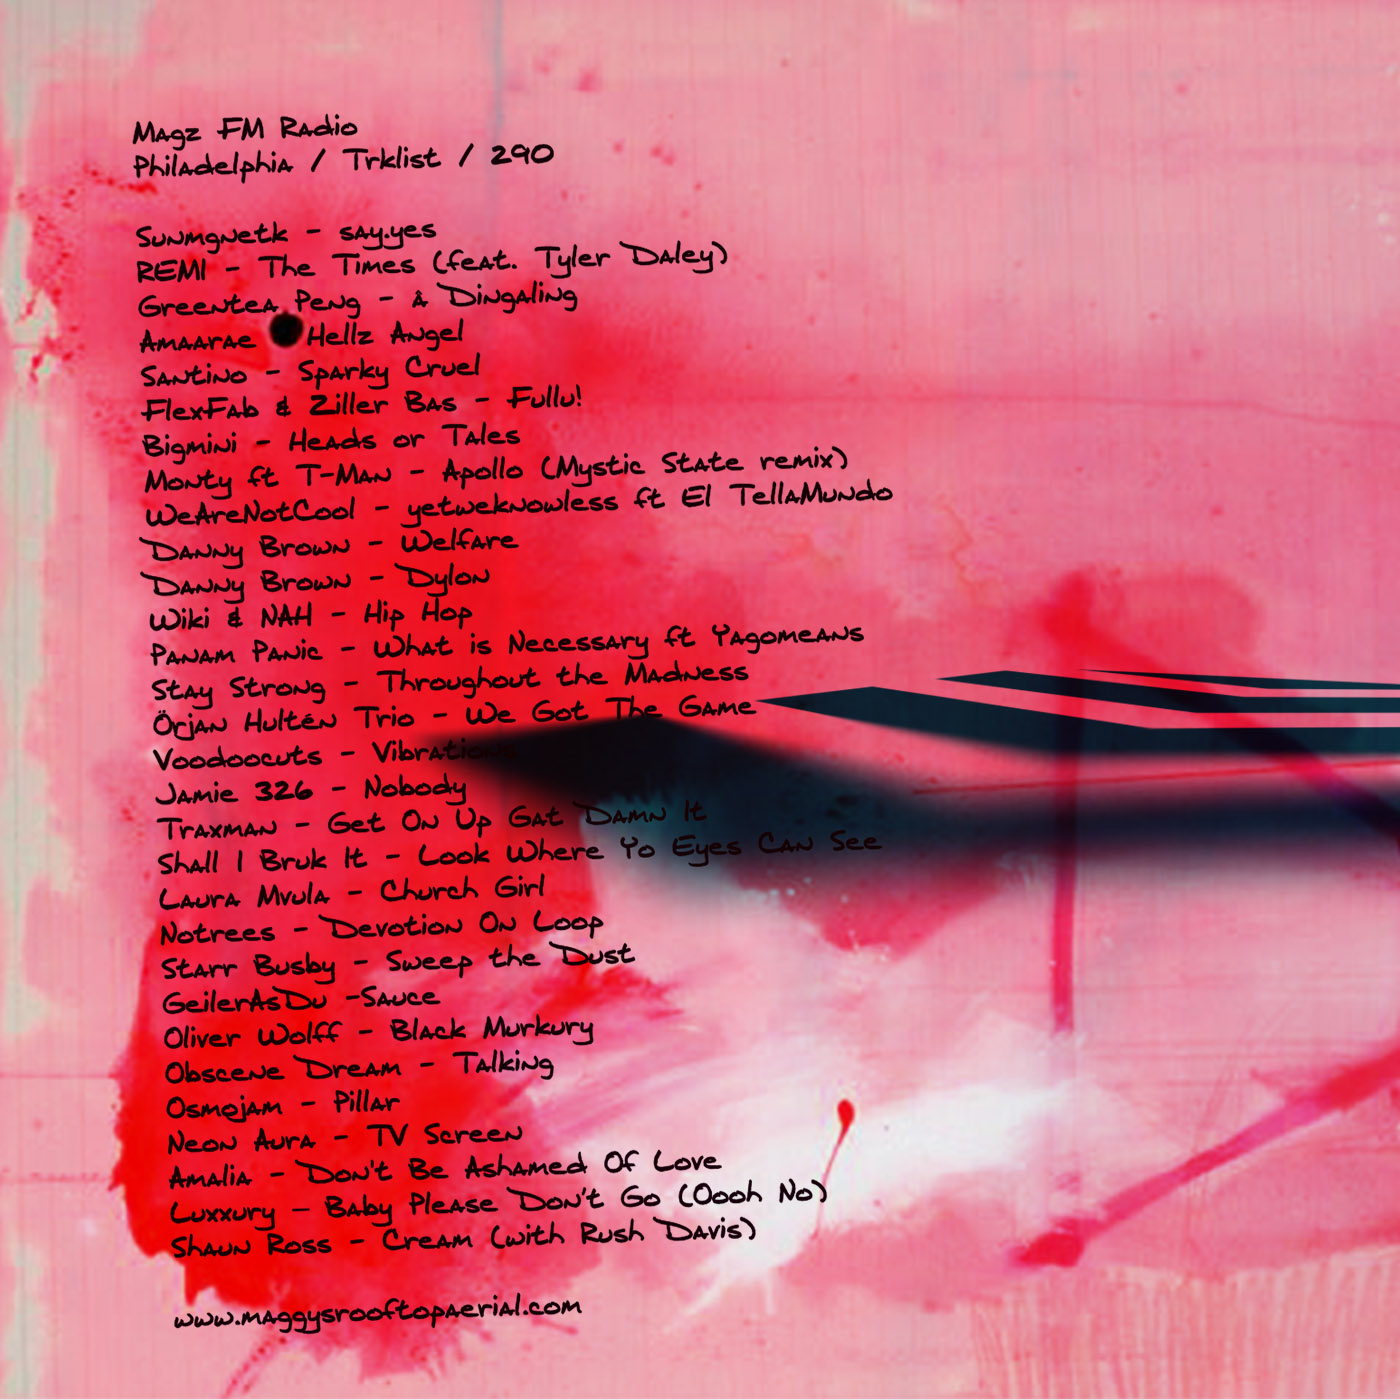 Magz FM Radio
Philadelphia / Trklist / 290
Sunmgnetk - say.yes
REMI - The Times (feat. Tyler Daley)
Greentea Peng - â Dingaling
Amaarae Hellz Angel
Santino - Sparky Cruel
FlexFab & Ziller Bas - Fullu!
Bigmini - Heads or Tales
Monty ft T-Man - Apollo (Mystic State remix)
WeAreNotCool - yetweknowless ft El TellaMundo
Danny Brown - Welfare
Danny Brown - Dylon
Wiki & NAH - Hip Hop
Panam Panic - What is Necessary ft Yagomeans
Stay Strong - Throughout the Madness
Örjan Hultén Trio - We Got The Game
Voodoocuts - Vibrations
Jamie 326 - Nobody
Traxman - Get On Up Gat Damn It
Shall I Bruk It - Look Where Yo Eyes Can See
Laura Mvula - Church Girl
Notrees - Devotion On Loop
Starr Busby - Sweep the Dust
GeilerAsDu -Sauce
Oliver Wolff - Black Murkury
Obscene Dream - Talking
Osmojam - Pillar
Neon Aura - TV Screen
Amalia - Don't Be Ashamed Of Love
Luxxury – Baby Please Don't Go (Oooh No)
Shaun Ross - Cream (with Rush Davis)
www.maggysrooftopaerial.com